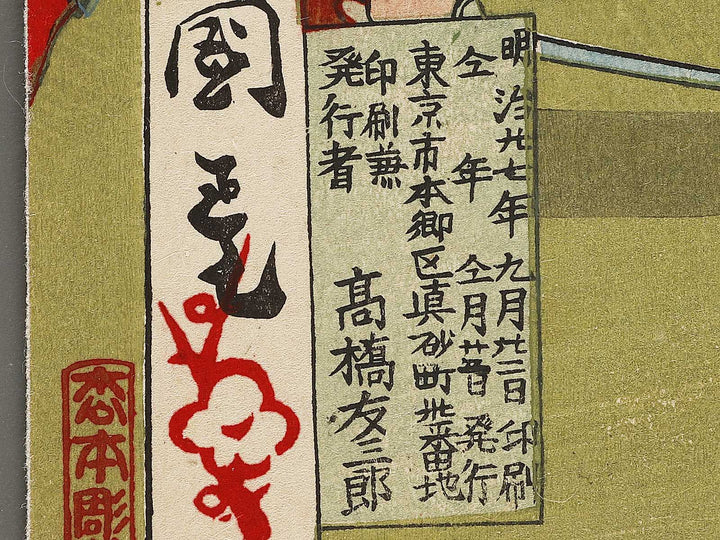 明治廿七年九月廿二日印刷
仝年仝月廿五日発行
東京市本郷区真砂町番地
印刷兼
発行者 高橋友三郎
國
枩本彫